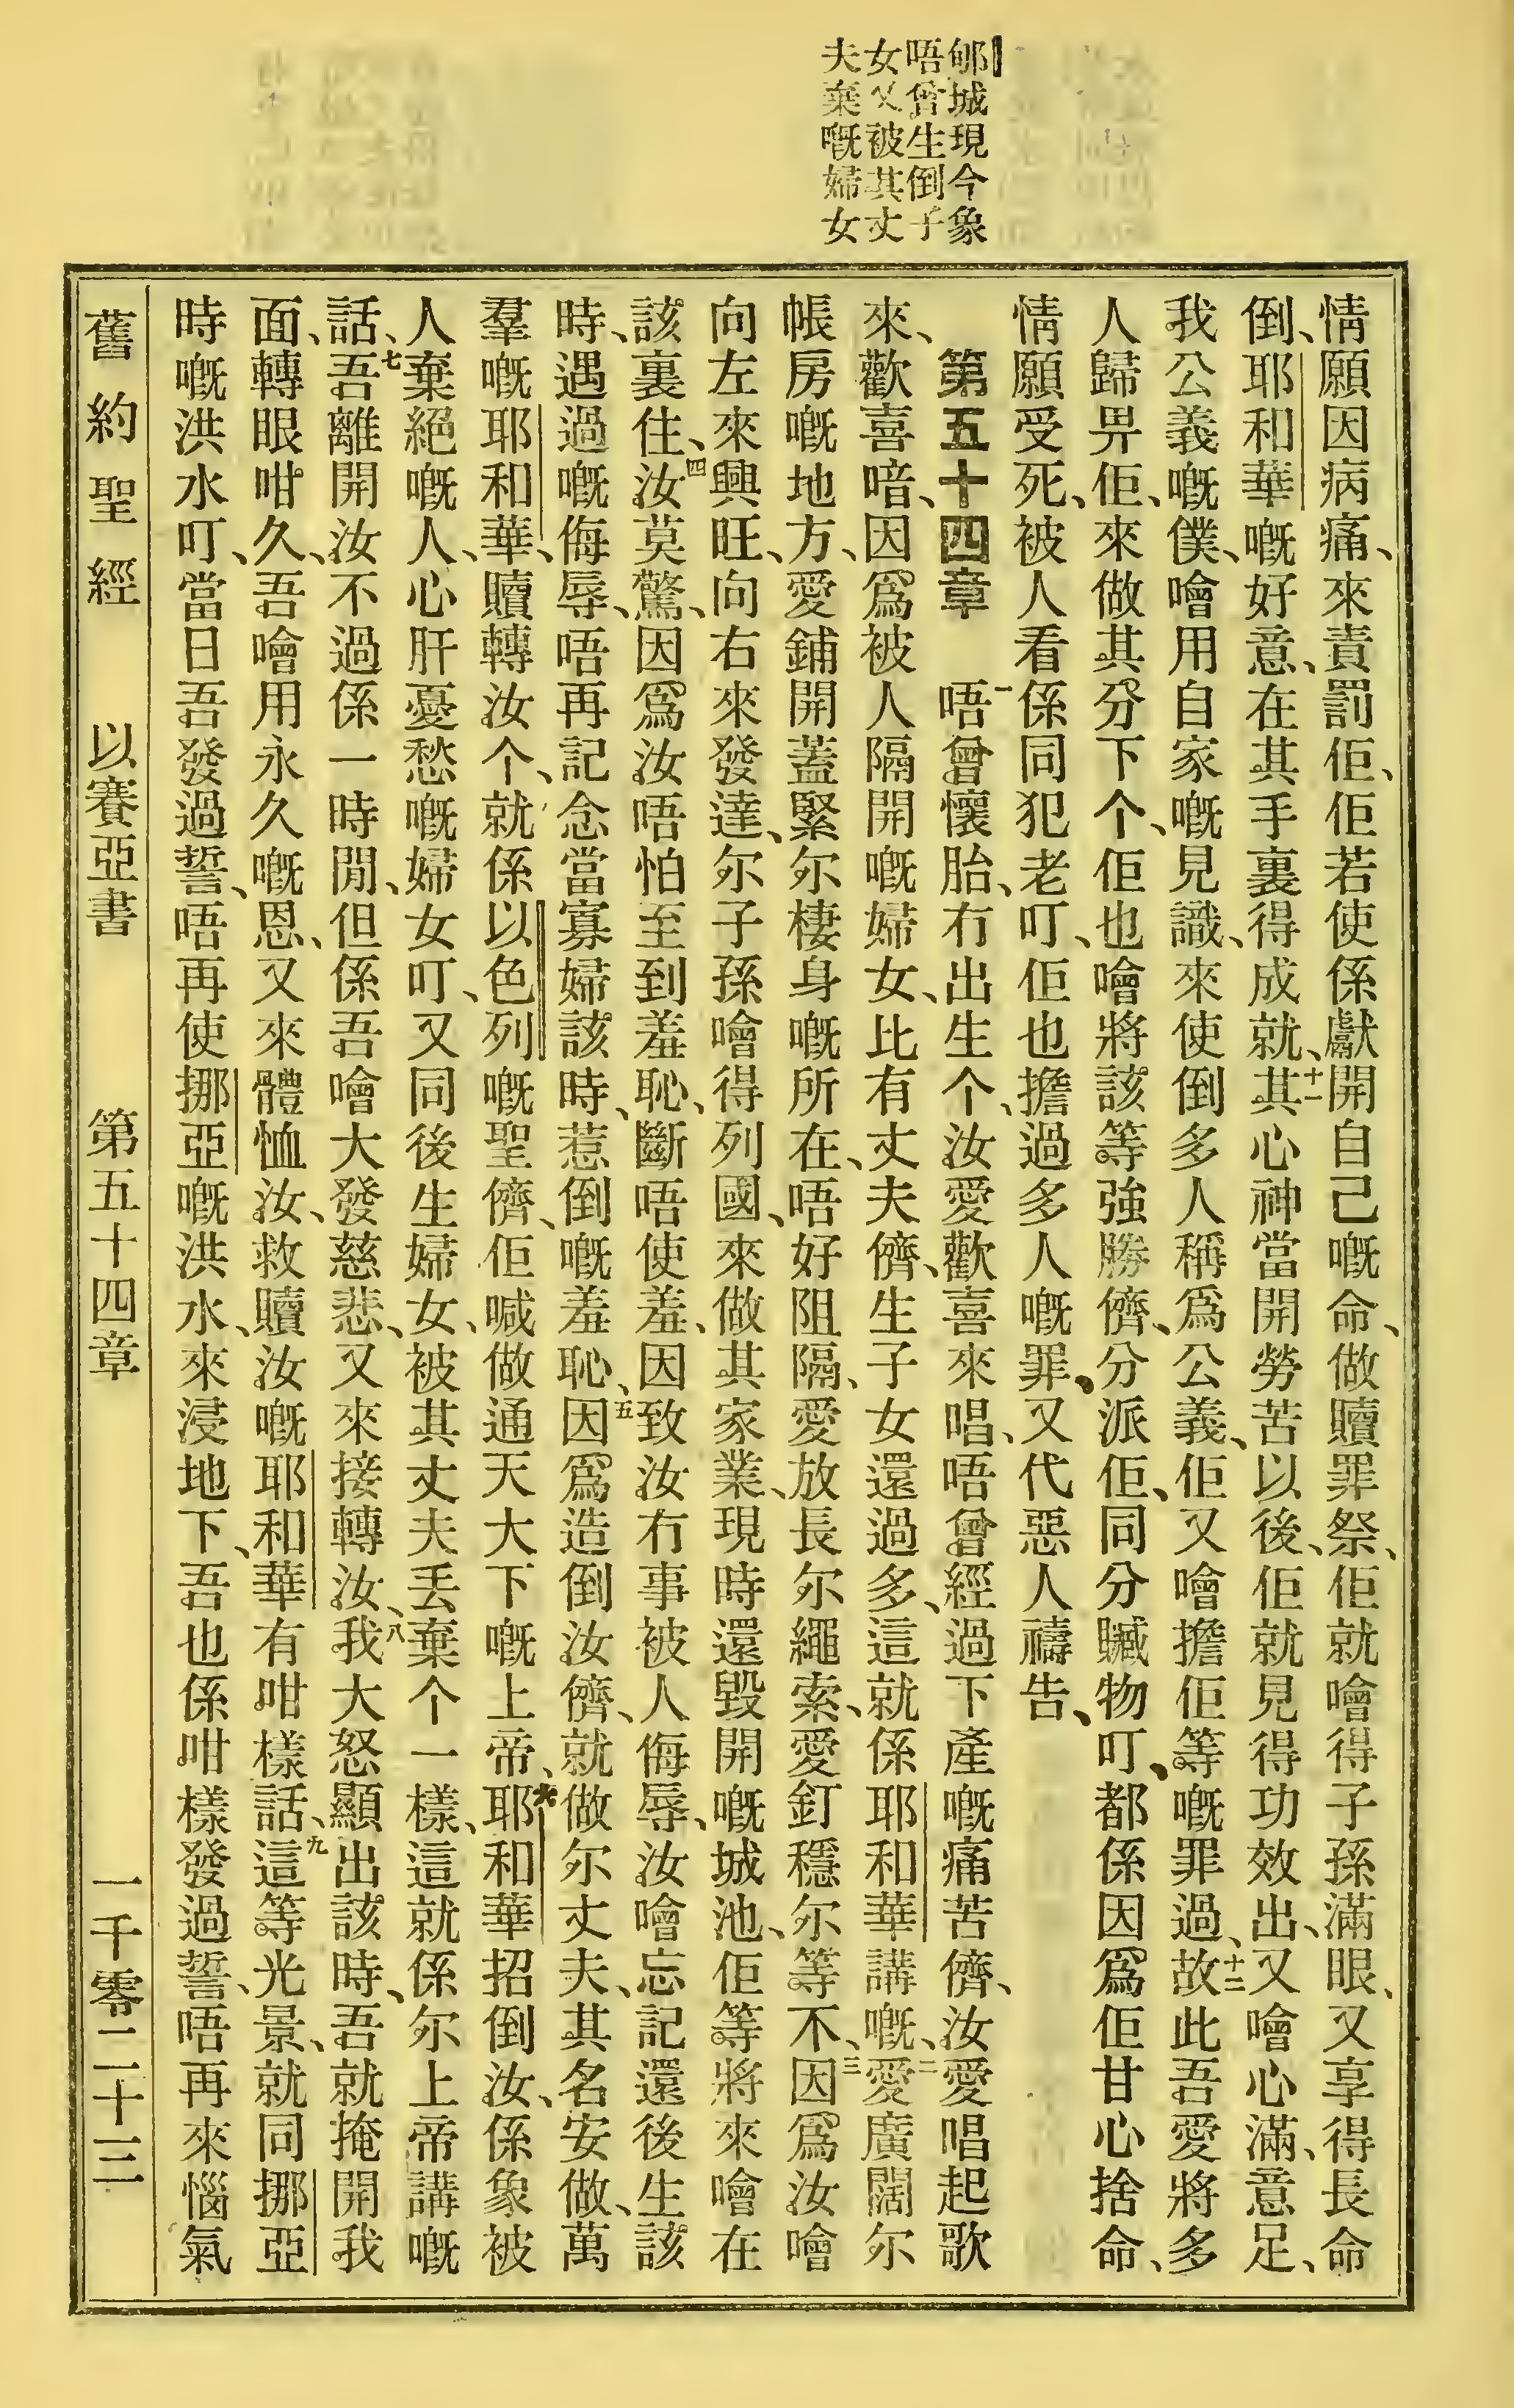 郇城現今象
唔曾生倒子
女又被其丈
夫棄嘅婦女
情願因病痛、來責罰佢、佢若使係獻開自己嘅命、做贖罪祭、佢就噲得子孫滿眼、又享得長命
倒、耶和華嘅好意、在其手裏得成就、十一其心神當開勞苦以後、佢就見得功效出、又噲心滿、意足、
我公義嘅僕、噲用自家嘅見識、來使倒多人稱爲公義、佢又噲擔佢等嘅罪過、十二故此吾愛將多
人歸畀佢、來做其分下个、佢也噲將該等強勝儕、分派佢、同分贓物叮、都係因爲佢甘心捨命、
情願受死、被人看係同犯老叮、佢也擔過多人嘅罪、又代惡人禱告、
第五十四章　一唔曾懷胎、冇出生个、汝愛歡喜來唱、唔曾經過下產嘅痛苦儕、汝愛唱起歌
來、歡喜喑、因爲被人隔開嘅婦女、比有丈夫儕、生子女還過多、這就係耶和華講嘅、二愛廣闊尔
帳房嘅地方、愛鋪開蓋緊尔棲身嘅所在、唔好阻隔、愛放長尔繩索、愛釘穩尔等不、三因爲汝噲
向左來興旺、向右來發達、尔子孫噲得列國、來做其家業、現時還毀開嘅城池、佢等將來噲在
該裏住、四汝莫驚、因爲汝唔怕至到羞恥、斷唔使羞、因致汝冇事被人侮辱、汝噲忘記還後生該
時、遇過嘅侮辱、唔再記念當寡婦該時、惹倒嘅羞恥、五因爲造倒汝儕、就做尔丈夫、其名安做、萬
羣嘅耶和華、贖轉汝个、就係以色列嘅聖儕、佢喊做通天大下嘅上帝、六耶和華招倒汝、係象被
人棄絕嘅人、心肝憂愁嘅婦女叮、又同後生婦女、被其丈夫丟棄个一樣、這就係尔上帝講嘅
話、七吾離開汝不過係一時間、但係吾噲大發慈悲、又來接轉汝、八我大怒顯出該時、吾就掩開我
面、轉眼咁久、吾噲用永久嘅恩、又來體恤汝、救贖汝嘅耶和華有咁樣話、九這等光景、就同挪亞
時嘅洪水叮、當日吾發過誓、唔再使挪亞嘅洪水、來浸地下、吾也係咁樣發過誓、唔再來惱氣
舊約聖經　以賽亞書　第五十四章　一千零二十三